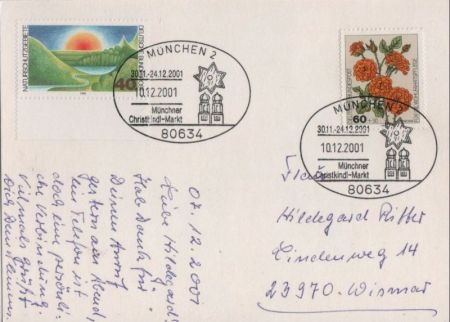 NATURSCHUTZGEBIETE
DEUTSCHE BUNDESPOST
40
MÜNCHEN 2
30.11.-24.12.2001
10.12.2001
Münchner
Christkindl-Markt
80634
60
MÜNCHEN 2
30.11.-24.12.2001
10.12.2001
Münchner
Christkindl-Markt
80634
07.12.2001
Liebe Hildegard!
Hab Dank für
Deinen Anruf
gestern am Abend,
Telefon ist
doch eine persönli-
che Verbindung.
Vielmals grüßt
Dich
Frau
Hildegard Ritter
Lindenweg 14
23970 Wismar